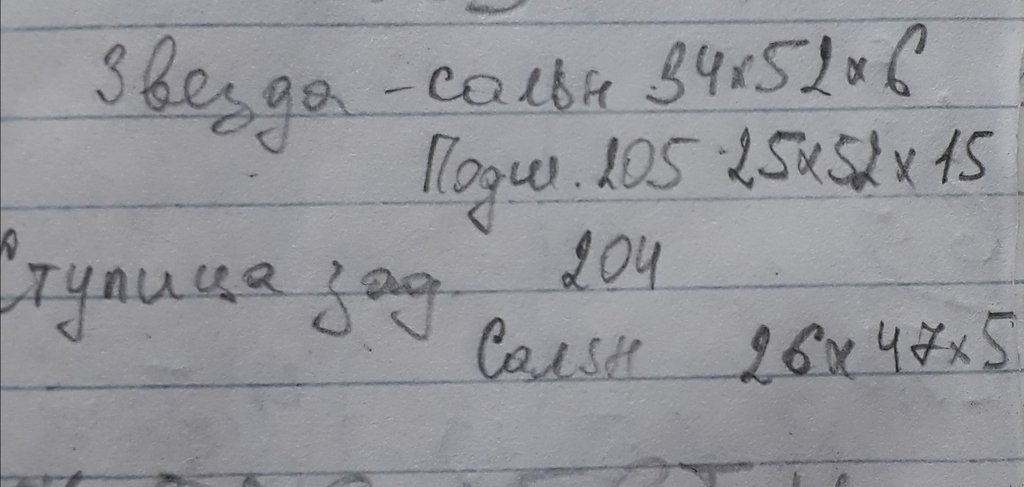 Звезда - сальн 34х52х6
Подш. 205 25х52х15
Ступица зад. 204
Сальн 26х47х5